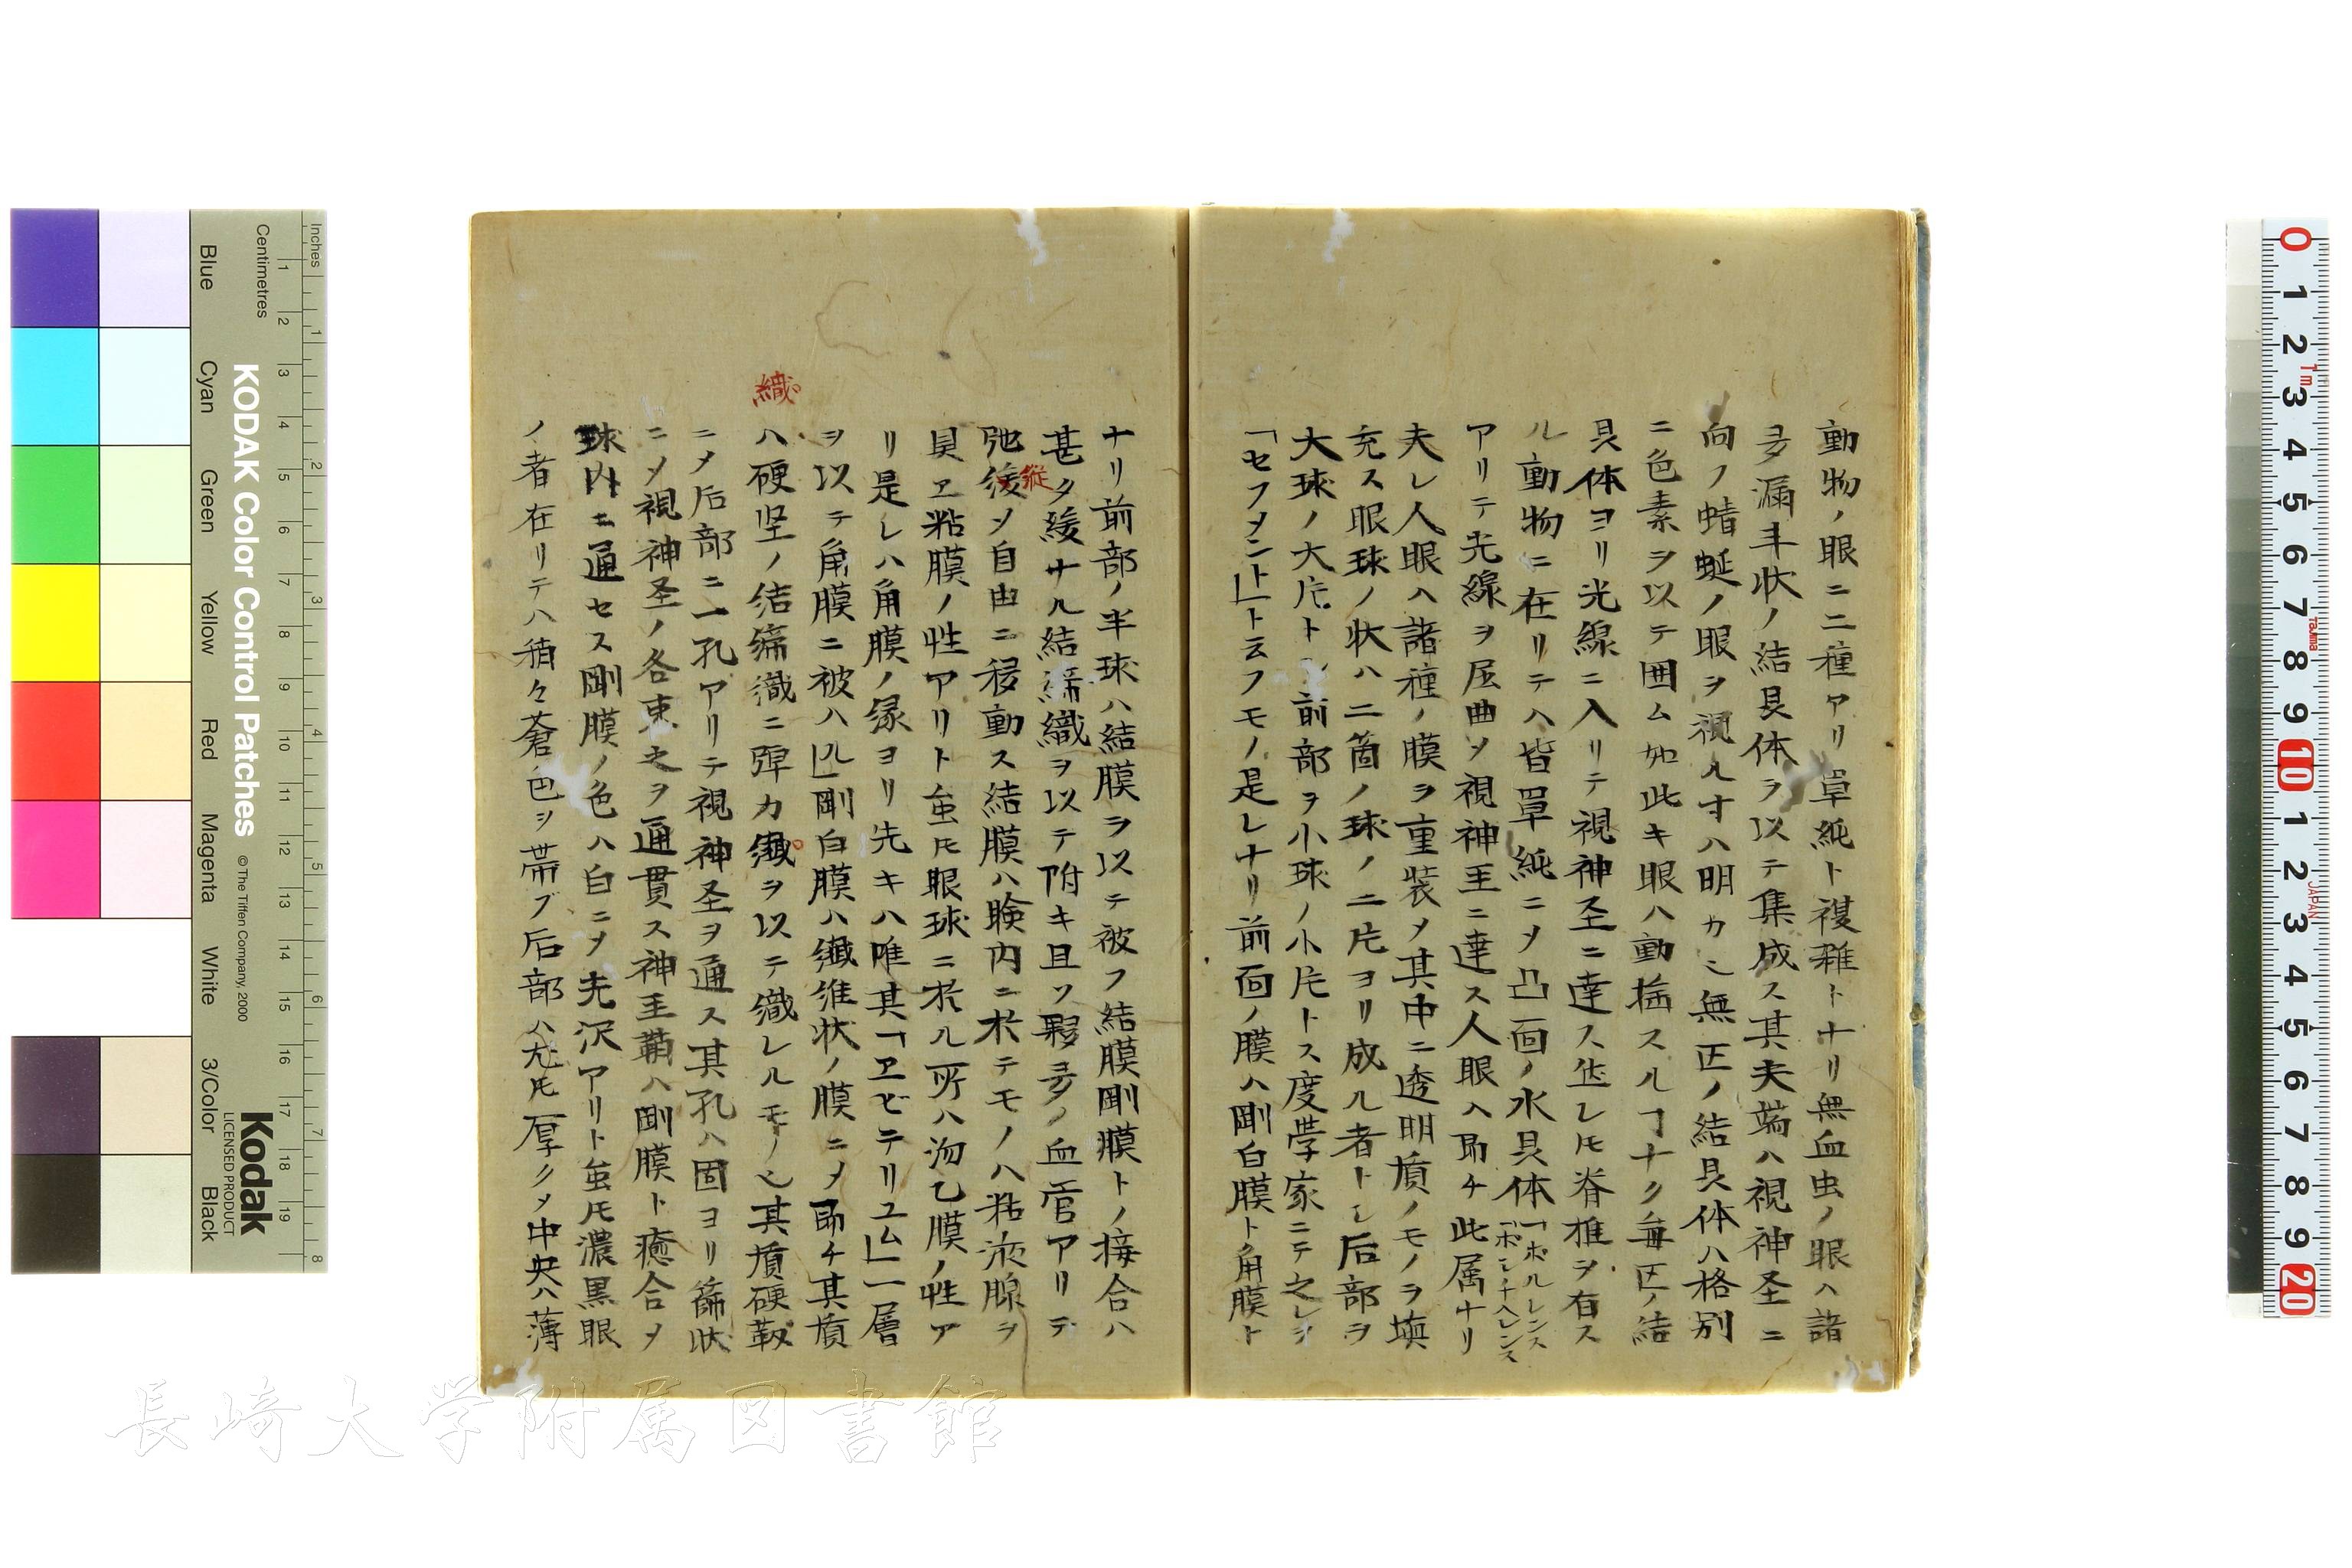 動物ノ眼ニ二種アリ單純ト複雜トナリ無血虫ノ眼ハ諸
多漏斗状ノ結晶体ヲ以テ集成ス其夫端ハ視神圣ニ
向フ蜻蜒ノ眼ヲ視ルすハ明カニ無正ノ結晶体ハ格別
ニ色素ヲ以テ囲ム如此キ眼ハ動揺スルヿナク毎正ノ結
晶体ヨリ光線ニ入リテ視神圣ニ達ス然レ𪜈脊椎ヲ有ス
ル動物ニ在リテハ皆單純ニメ凸面ノ水晶体「ボルレンス「ボンナヘレンス
アリテ光線ヲ屈曲メ視神圣ニ達ス人眼ハ即チ此属ナリ
夫レ人眼ハ諸種ノ膜ヲ重装メ其中ニ透明質ノモノヲ填
充ス眼球ノ状ハ二箇ノ球ノ二片ヨリ成ル者トシ后部ヲ
大球ノ大片ト 前部ヲ小球ノ小片トス度学家ニテ之レヲ
「セフメント」ト云フモノ是レナリ前面ノ膜ハ剛白膜ト角膜ト
ナリ前部ノ半球ハ結膜ヲ以テ被フ結膜剛膜トノ接合ハ
甚タ緩ナル結締織ヲ以テ附キ且ツ夥多ノ血管アリテ
弛緩メ自由ニ移動ス結膜ハ瞼内ニ於テモノハ粘液腺ヲ
縦
具ヱ粘膜ノ性アリト虽𪜈眼球ニ於ル所ハ沕乙膜ノ性ア
リ是レハ角膜ノ縁ヨリ先キハ唯其「ヱピテリユム」一層
ヲ以テ角膜ニ被ハル」剛白膜ハ纖維状ノ膜ニメ即チ其質
織
ハ硬坚ノ結締織ニ彈力纖ヲ以テ織レルモノ也其質硬靱
ニメ后部ニ一孔アリテ視神圣ヲ通ス其孔ハ固ヨリ篩状
ニメ視神圣ノ各束之ヲ通貫ス神圣鞘ハ剛膜ト癒合メ
球内ニ通セス剛膜ノ色ハ白ニメ光沢アリト虽𪜈濃黒眼
ノ者在リテハ稍々蒼色ヲ帯ブ后部ハ尤𪜈厚クメ中央ハ薄
KODAK Color Control Patches
© The Tiffen Company, 2000
Kodak
LICENSED PRODUCT
Inches
Centimetres
1 2 3 4 5 6 7 8 9 10 11 12 13 14 15 16 17 18 19
1 2 3 4 5 6 7 8
Blue
Cyan
Green
Yellow
Red
Magenta
White
3/Color
Black
0 1 2 3 4 5 6 7 8 9 10 1 2 3 4 5 6 7 8 9 20
1m
Tajima
JAPAN
長崎大学附属図書館